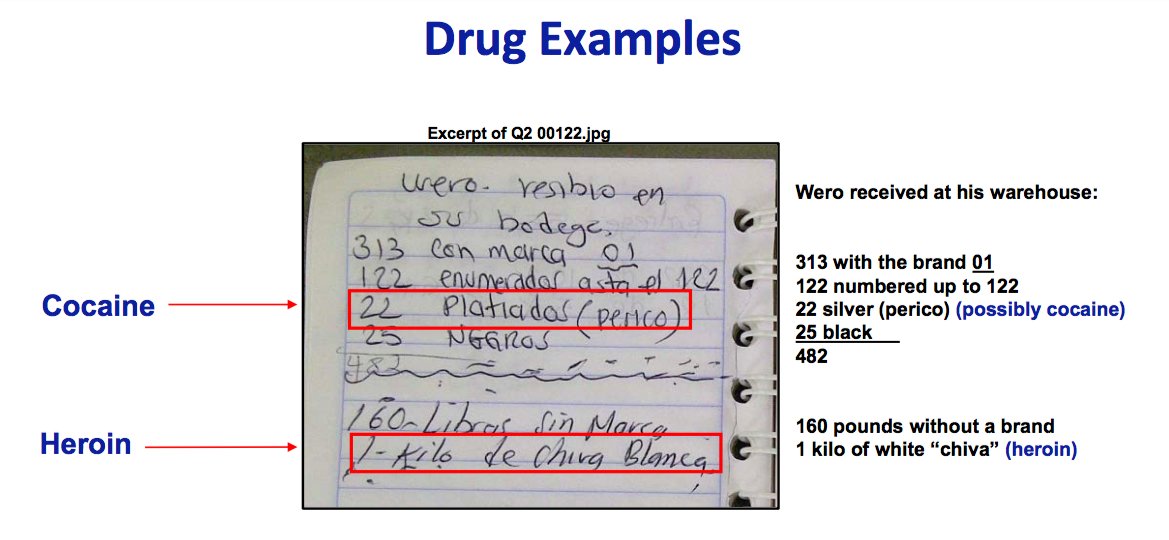 Drug Examples
Excerpt of Q2 00122.jpg
Wero. resibio en
su bodega.
313 con marca 01
122 enumerados asta el 122
22 Platiados (perico)
25 NEGROS
482
160-Libras Sin Marca
1-Kilo de Chiva Blanca
Cocaine
Heroin
Wero received at his warehouse:
313 with the brand 01
122 numbered up to 122
22 silver (perico) (possibly cocaine)
25 black
482
160 pounds without a brand
1 kilo of white “chiva” (heroin)